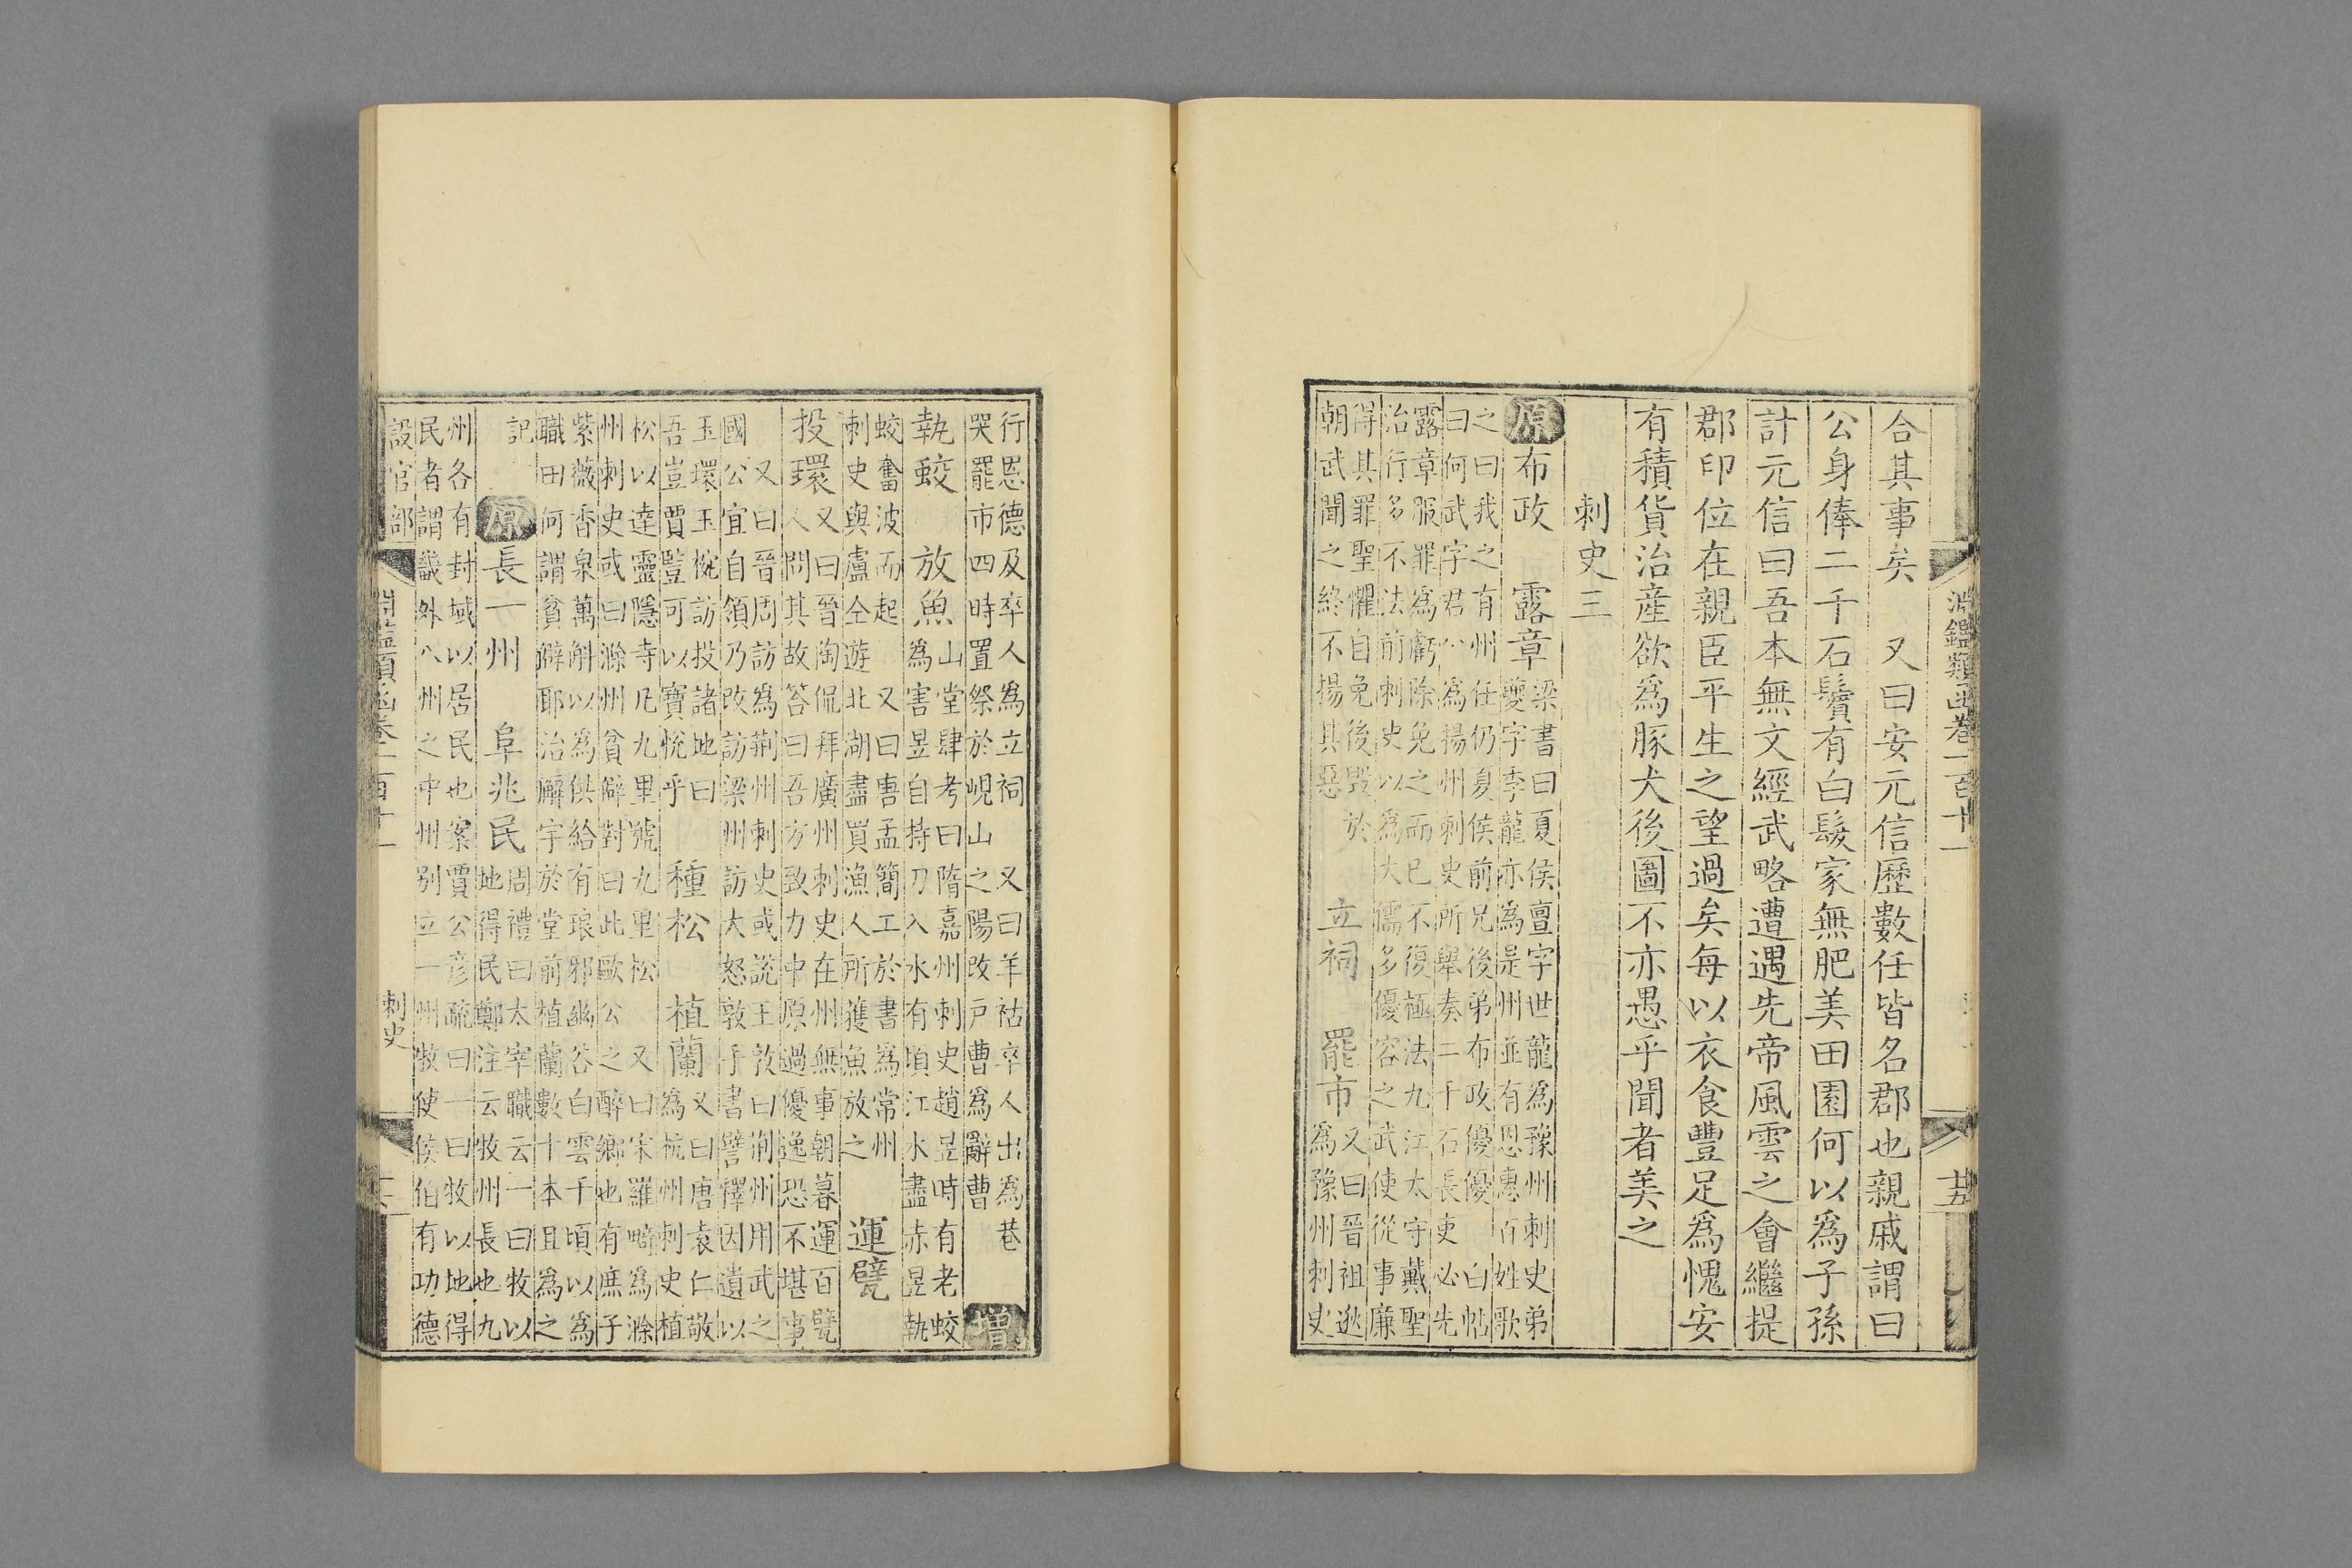 淵鑑類函卷二百十一
廿五
合其事矣　又曰安元信歷數任皆名郡也親戚謂曰
公身俸二千石鬢有白髮家無肥美田園何以爲子孫
計元信曰吾本無文經武略遭遇先帝風雲之會繼提
郡印位在親臣平生之望過矣每以衣食豐足爲愧安
有積貨治産欲爲豚犬後圖不亦愚乎聞者美之
刺史三
原布政　露章
梁書曰夏侯亶字世龍爲豫州刺史弟
夔字季龍亦爲是州並有恩惠百姓歌
之曰我之有州任仍夏侯前兄後弟布政優優　白帖
曰何武字君公爲揚州刺史所舉奏二千石長吏必先
露章服罪爲虧除免之而已不復極法九江太守戴聖
治行多不法前刺史以爲大儒多優容之武使從事廉
得其罪聖懼自免後毀於
朝武聞之終不揚其惡
立祠　罷市
又曰晉祖逖
爲豫州刺史
行恩德及卒人爲立祠　又曰羊祜卒人出爲巷
哭罷市四時置祭於峴山之陽改戶曹爲辭曹
增
執蛟　放魚
山堂肆考曰隋嘉州刺史趙昱時有老蛟
爲害昱自持刀入水有頃江水盡赤昱執
蛟奮波而起　又曰唐孟簡工於書爲常州
刺史與盧仝遊北湖盡買漁人所獲魚放之
運甓
投環
又曰晉陶侃拜廣州刺史在州無事朝暮運百甓
人問其故答曰吾方致力中原過優逸恐不堪事
又曰晉周訪爲荆州刺史或說王敦曰荆州用武之
國公宜自領乃改訪梁州訪大怒敦手書譬釋因遺以
玉環玉椀訪投諸地曰
吾豈賈豎可以寶悅乎
種松　植蘭
又曰唐袁仁敬
爲杭州刺史植
松以達靈隱寺凡九里號九里松　又曰宋羅畸爲滁
州刺史或曰滁州貧僻對曰此歐公之醉鄉也有庶子
紫薇香泉萬斛以爲供給有琅邪幽谷白雲千頃以爲
職田何謂貧僻耶治廨宇於堂前植蘭數十本且爲之
記
原長一州　阜兆民
周禮曰太宰職云一曰牧以
地得民鄭注云牧州長也九
州各有封域以居民也案賈公彥疏曰一曰牧以地得
民者謂畿外八州之中州別立一州牧使侯伯有功德
設官部
淵鑑類函卷二百十一
刺史